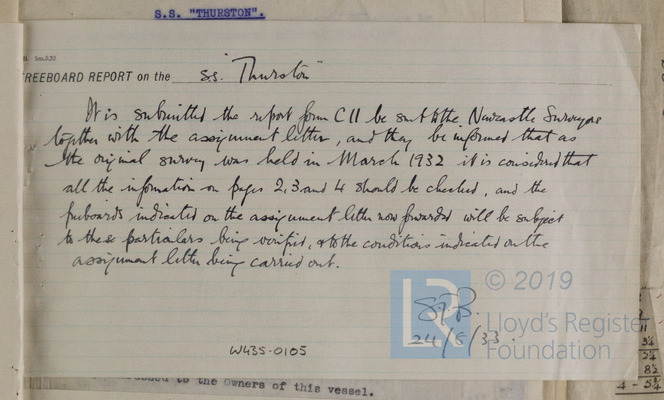 S.S. "THURSTON".
Sms.5.30
REEBOARD REPORT on the S.S. "Thurston"
It is submitted the report form C11 be sent to the Newcastle Surveyors
together with the assignment letter, and they be informed that as
the original survey was held in March 1932 it is considered that
all the information on pages 2, 3 and 4 should be checked, and the
freeboards indicated on the assignment letter now forwarded will be subject
to these particulars being verified, & to the conditions indicated on the
assignment letter being carried out.
© 2019
LR
Lloyd's Register
Foundation
24/8/33.
W435-0105
to the owners of this vessel.
3¼
2¼
8½
4 - 5¾